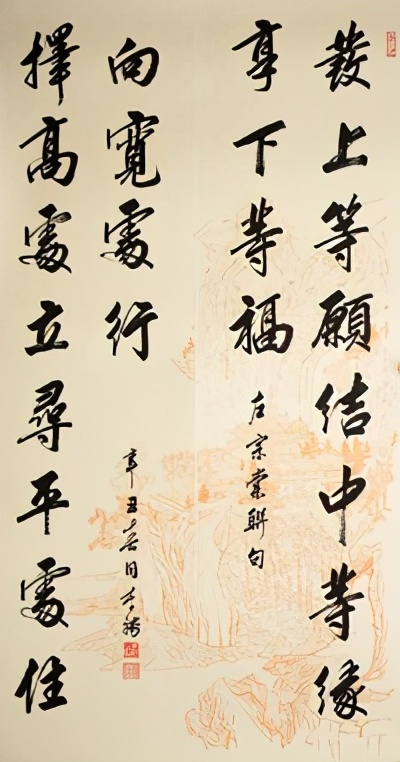 發上等願結中等緣
享下等福
左宗棠聯句
擇高處立尋平處住
向寬處行
辛丑春月